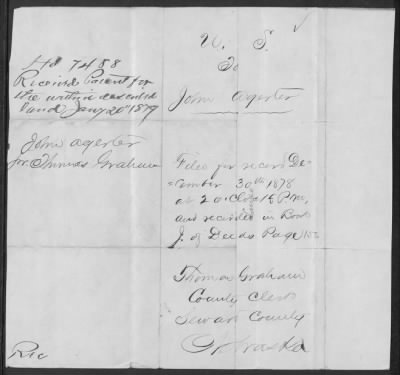 Hd 7488
Received Patent for
the within described
land Jany 20th 1879
John Agerter
for Thomas Graham
Rec
U. S.
To
John Agerter
Filed for record De-
cember 30th 1878
at 2 o'clock P.M.
and recorded in Book
J. of Deeds Page
Thomas Graham
County Clerk
Seward County
Nebraska